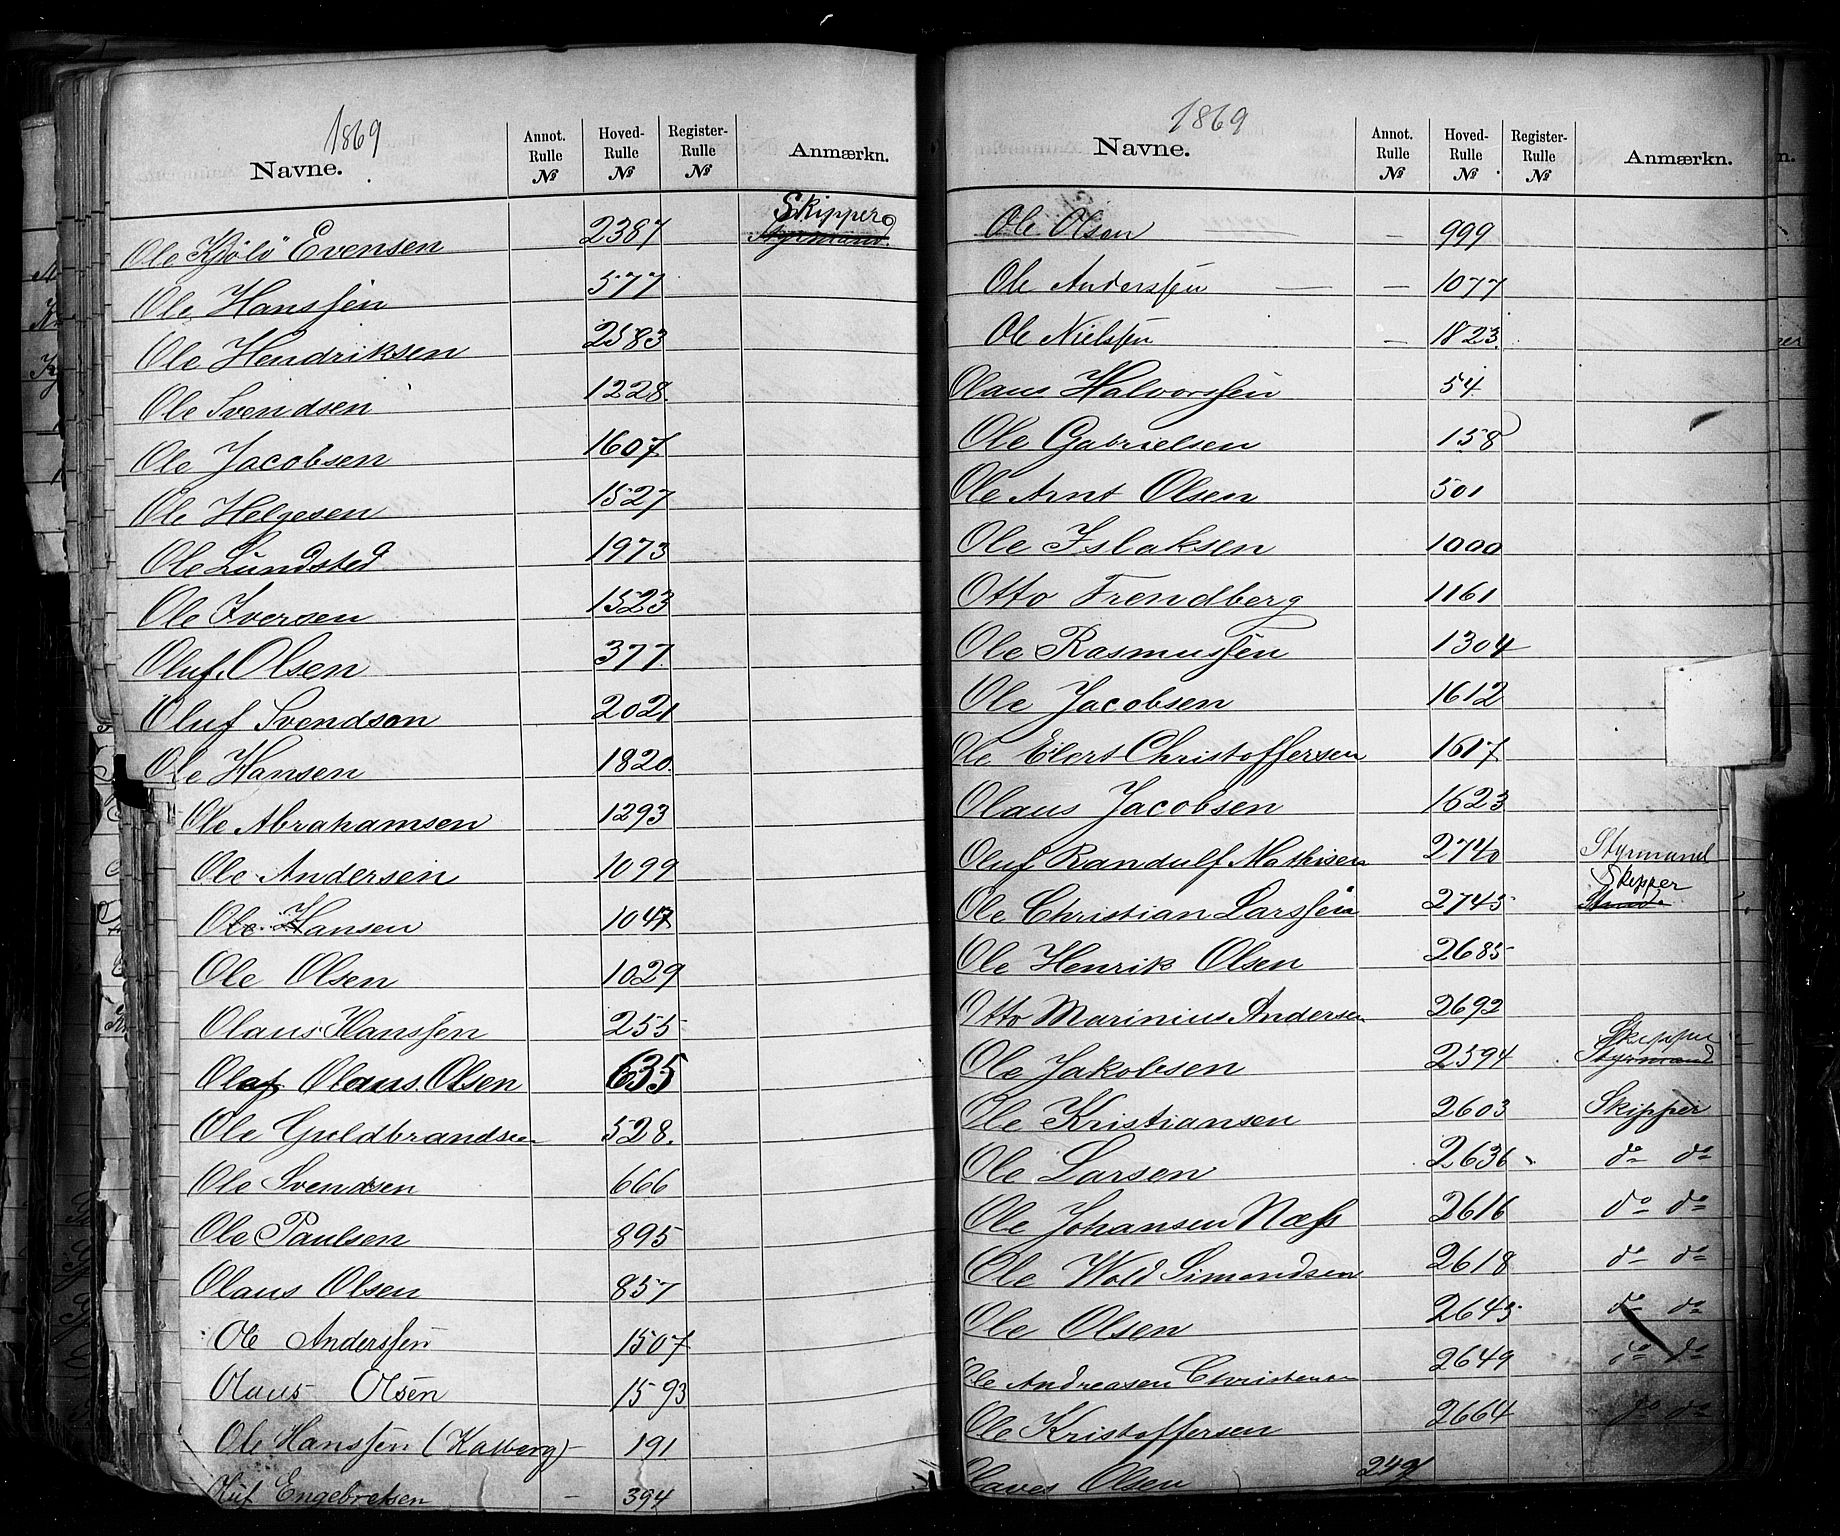 1869
Navne. Annot. Rulle № Hoved- Rulle № Register- Rulle № Anmærkn.
Ole Kjölö Evensen 2387 Skipper Styrmand
Ole Hanssen 577
Ole Hendriksen 2583
Ole Svendsen 1228
Ole Jacobsen 1607
Ole Helgesen 1527
Ole Lundsted 1973
Ole Iversen 1523
Oluf Olsen 377
Oluf Svendsen 2021
Ole Hansen 1820
Ole Abrahamsen 1293
Ole Andersen 1099
Ole Hansen 1047
Ole Olsen 1029
Olaus Hanssen 255
Olaf Olaus Olsen 635
Ole Guldbrandsen 528.
Ole Svendsen 666
Ole Paulsen 895
Olaus Olsen 857
Ole Anderssen 1507
Olaus Olsen 1593
Ole Hanssen (Kalberg) 191
Oluf Engebretsen — 394
1869
Navne. Annot. Rulle № Hoved- Rulle № Register- Rulle № Anmærkn.
Ole Olsen — 999
Ole Anderssen — — 1077
Ole Nielssen — 1823.
Olaus Halvorssen 54
Ole Gabrielsen 158
Ole Arnt Olsen 501
Ole Islaksen 1000
Otto Trendberg 1161
Ole Rasmussen 1304
Ole Jacobsen 1612
Ole Elert Christoffersen 1617
Olaus Jacobsen 1623
Oluf Randulf Mathisen 2740 Styrmand
Ole Christian Larssen 2745 Skipper
Ole Henrik Olsen 2685
Otto Marinius Andersen 2692
Ole Jakobsen 2594 Skipper Styrmand
Ole Kristiansen 2603 Skipper
Ole Larsen 2636 do do
Ole Johansen Næss 2616 do do
Ole Wold Simondsen 2618 do do
Ole Olsen 2645 do do
Ole Andreasen Christensen 2649 do do
Ole Kristoffersen 2664 do do
Olaves Olsen 249